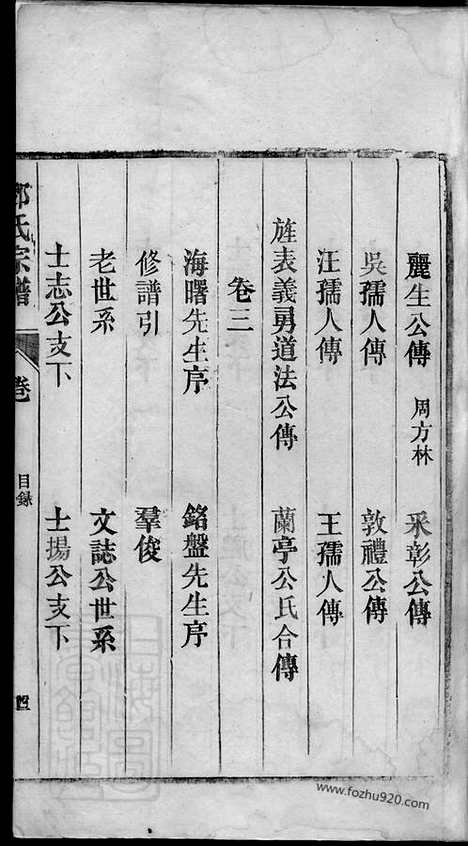 麗生公傳　周方林　采彰公傳
吳孺人傳　敦禮公傳
汪孺人傳　王孺人傳
旌表義勇道法公傳　蘭亭公氏合傳
卷三
海曙先生序　銘盤先生序
修譜引　羣俊
老世系　文誌公世系
士志公支下　士揚公支下
氏宗譜　卷　目録　四
www.fozhu920.com